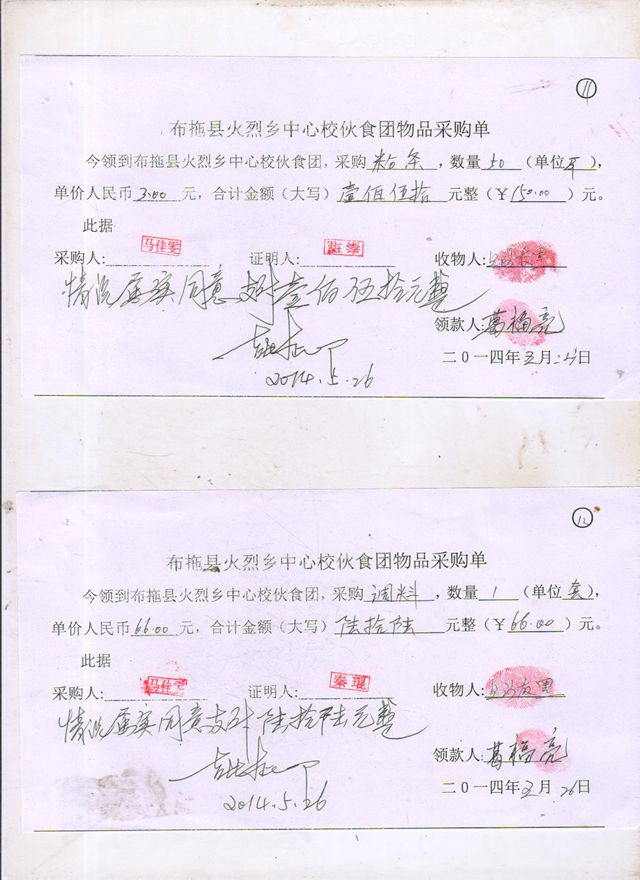 11
布拖县火烈乡中心校伙食团物品采购单
今领到布拖县火烈乡中心校伙食团，采购，数量 50 （单位 ），
单价人民币 3.00 元，合计金额（大写） 壹佰伍拾 元整（￥150.00）元。
此据
采购人: 马佳雯 证明人: 收物人:
情况属实同意支付壹佰伍拾元整
领款人: 葛福亮
2014.5.26
二0一四年五月 日
12
布拖县火烈乡中心校伙食团物品采购单
今领到布拖县火烈乡中心校伙食团，采购 调料 ，数量 1 （单位 套），
单价人民币 66.00 元，合计金额（大写） 陆拾陆 元整（￥66.00）元。
此据
采购人: 马佳雯 证明人: 秦琨 收物人:
情况属实同意支付陆拾陆元整
领款人: 葛福亮
2014.5.26
二0一四年五月26日